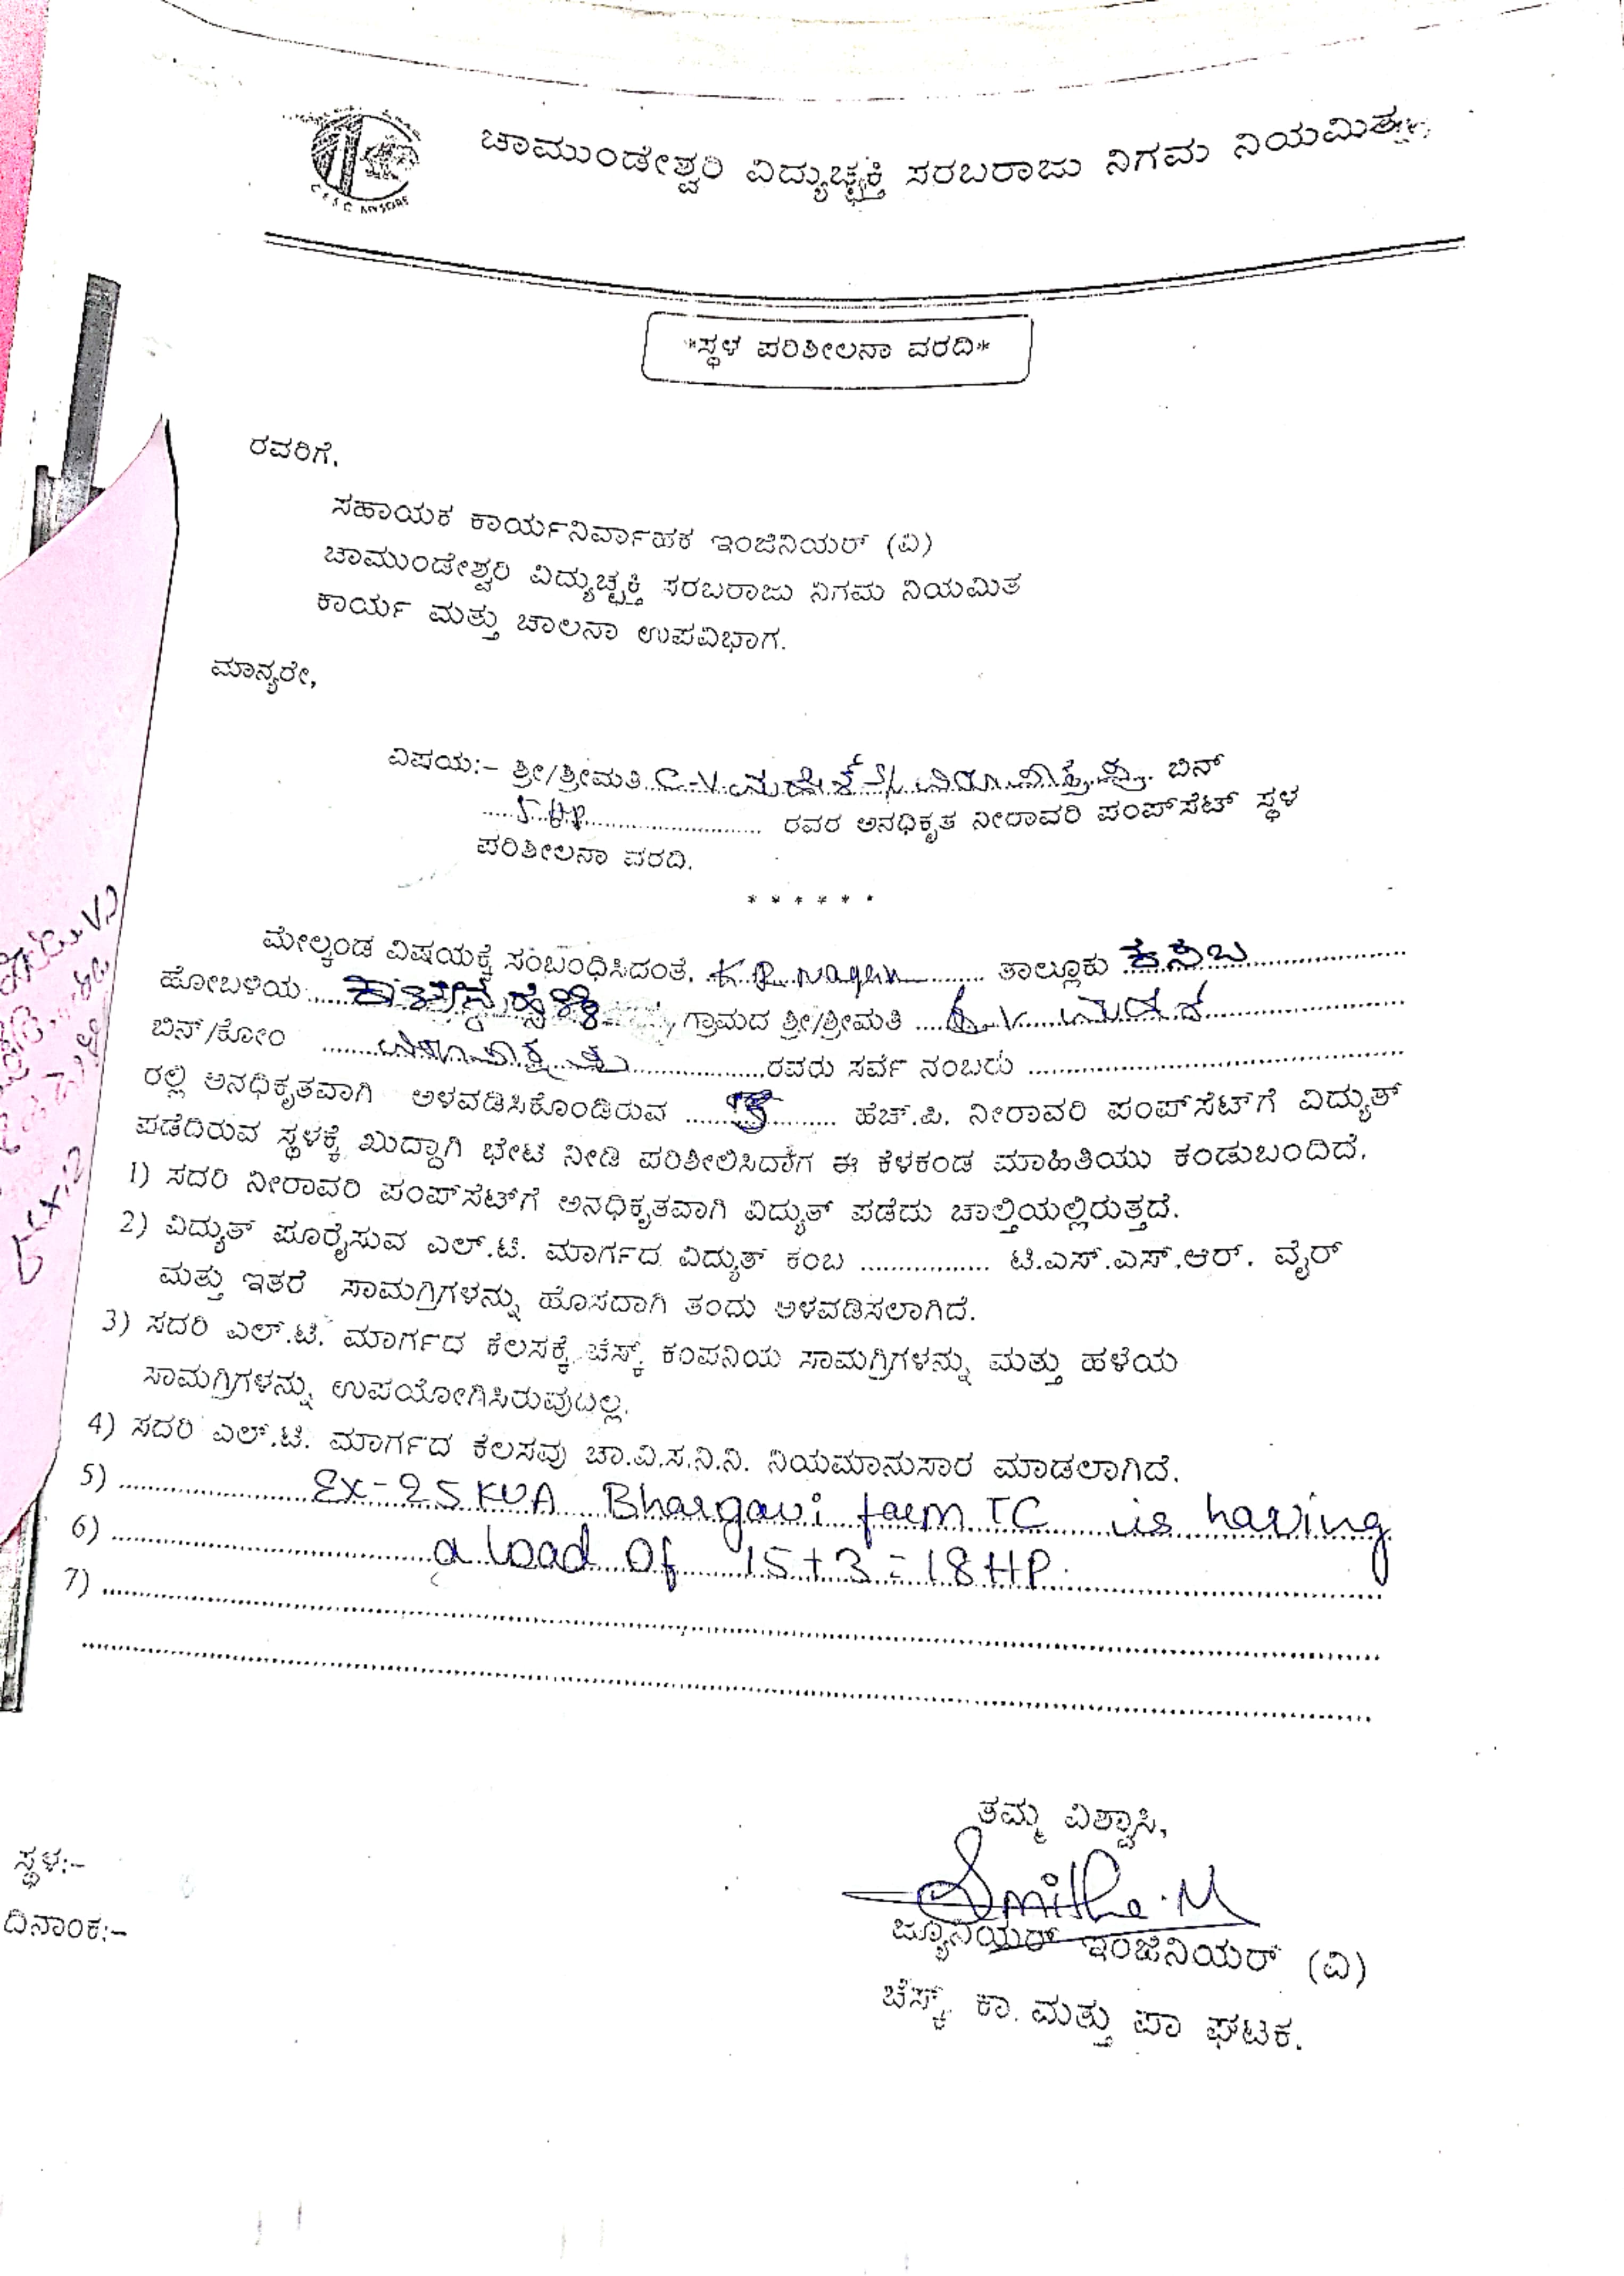 ಚಾಮುಂಡೇಶ್ವರಿ ವಿದ್ಯುಚ್ಛಕ್ತಿ ಸರಬರಾಜು ನಿಗಮ ನಿಯಮಿತ
*ಸ್ಥಳ ಪರಿಶೀಲನಾ ವರದಿ*
ರವರಿಗೆ,
ಸಹಾಯಕ ಕಾರ್ಯನಿರ್ವಾಹಕ ಇಂಜಿನಿಯರ್ (ವಿ)
ಚಾಮುಂಡೇಶ್ವರಿ ವಿದ್ಯುಚ್ಛಕ್ತಿ ಸರಬರಾಜು ನಿಗಮ ನಿಯಮಿತ
ಕಾರ್ಯ ಮತ್ತು ಚಾಲನಾ ಉಪವಿಭಾಗ.
ಮಾನ್ಯರೇ,
ವಿಷಯ:- ಶ್ರೀ/ಶ್ರೀಮತಿ C-V ಬಿನ್
5 HP ರವರ ಅನಧಿಕೃತ ನೀರಾವರಿ ಪಂಪ್‌ಸೆಟ್ ಸ್ಥಳ
ಪರಿಶೀಲನಾ ವರದಿ.
* * * * * *
ಮೇಲ್ಕಂಡ ವಿಷಯಕ್ಕೆ ಸಂಬಂಧಿಸಿದಂತೆ, K R Nagar ತಾಲ್ಲೂಕು ಕಸಬ
ಹೋಬಳಿಯ ಗ್ರಾಮದ ಶ್ರೀ/ಶ್ರೀಮತಿ
ಬಿನ್/ಕೋಂ ರವರು ಸರ್ವೆ ನಂಬರು
ರಲ್ಲಿ ಅನಧಿಕೃತವಾಗಿ ಅಳವಡಿಸಿಕೊಂಡಿರುವ ಹೆಚ್.ಪಿ. ನೀರಾವರಿ ಪಂಪ್‌ಸೆಟ್‌ಗೆ ವಿದ್ಯುತ್
ಪಡೆದಿರುವ ಸ್ಥಳಕ್ಕೆ ಖುದ್ದಾಗಿ ಭೇಟಿ ನೀಡಿ ಪರಿಶೀಲಿಸಿದಾಗ ಈ ಕೆಳಕಂಡ ಮಾಹಿತಿಯು ಕಂಡುಬಂದಿದೆ.
1) ಸದರಿ ನೀರಾವರಿ ಪಂಪ್‌ಸೆಟ್‌ಗೆ ಅನಧಿಕೃತವಾಗಿ ವಿದ್ಯುತ್ ಪಡೆದು ಚಾಲ್ತಿಯಲ್ಲಿರುತ್ತದೆ.
2) ವಿದ್ಯುತ್ ಪೂರೈಸುವ ಎಲ್.ಟಿ. ಮಾರ್ಗದ ವಿದ್ಯುತ್ ಕಂಬ ................. ಟಿ.ಎಸ್.ಎಸ್.ಆರ್. ವೈರ್
ಮತ್ತು ಇತರೆ ಸಾಮಗ್ರಿಗಳನ್ನು ಹೊಸದಾಗಿ ತಂದು ಅಳವಡಿಸಲಾಗಿದೆ.
3) ಸದರಿ ಎಲ್.ಟಿ. ಮಾರ್ಗದ ಕೆಲಸಕ್ಕೆ ಚೆಸ್ಕ್ ಕಂಪನಿಯ ಸಾಮಗ್ರಿಗಳನ್ನು ಮತ್ತು ಹಳೆಯ
ಸಾಮಗ್ರಿಗಳನ್ನು ಉಪಯೋಗಿಸಿರುವುದಿಲ್ಲ.
4) ಸದರಿ ಎಲ್.ಟಿ. ಮಾರ್ಗದ ಕೆಲಸವು ಚಾ.ವಿ.ಸ.ನಿ.ನಿ. ನಿಯಮಾನುಸಾರ ಮಾಡಲಾಗಿದೆ.
5) Ex-25 KVA Bhargavi farm TC is having
6) a load of 15+3=18HP.
7)
ತಮ್ಮ ವಿಶ್ವಾಸಿ,
Smitha.M
ಸ್ಥಳ:-
ದಿನಾಂಕ:-
ಜ್ಯೂನಿಯರ್ ಇಂಜಿನಿಯರ್ (ವಿ)
ಚೆಸ್ಕ್, ಕಾ. ಮತ್ತು ಪಾ ಘಟಕ.